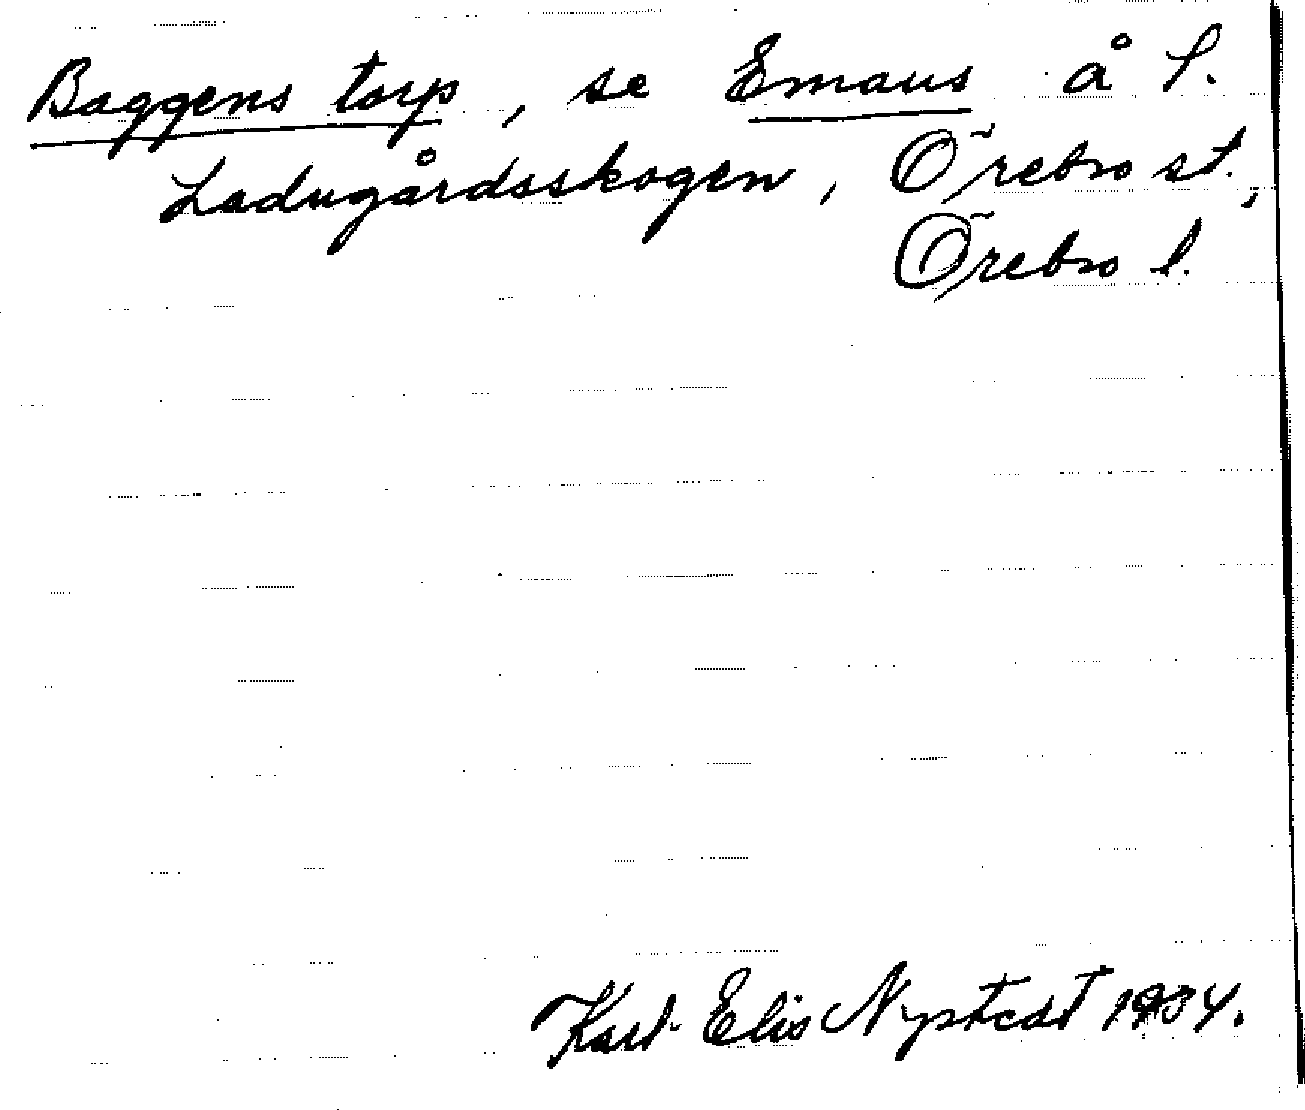 Baggens torp, se Emaus å l.
Ladugårdsskogen, Örebro st.,
Örebro l.
Karl-Elis Nystedt 1934.